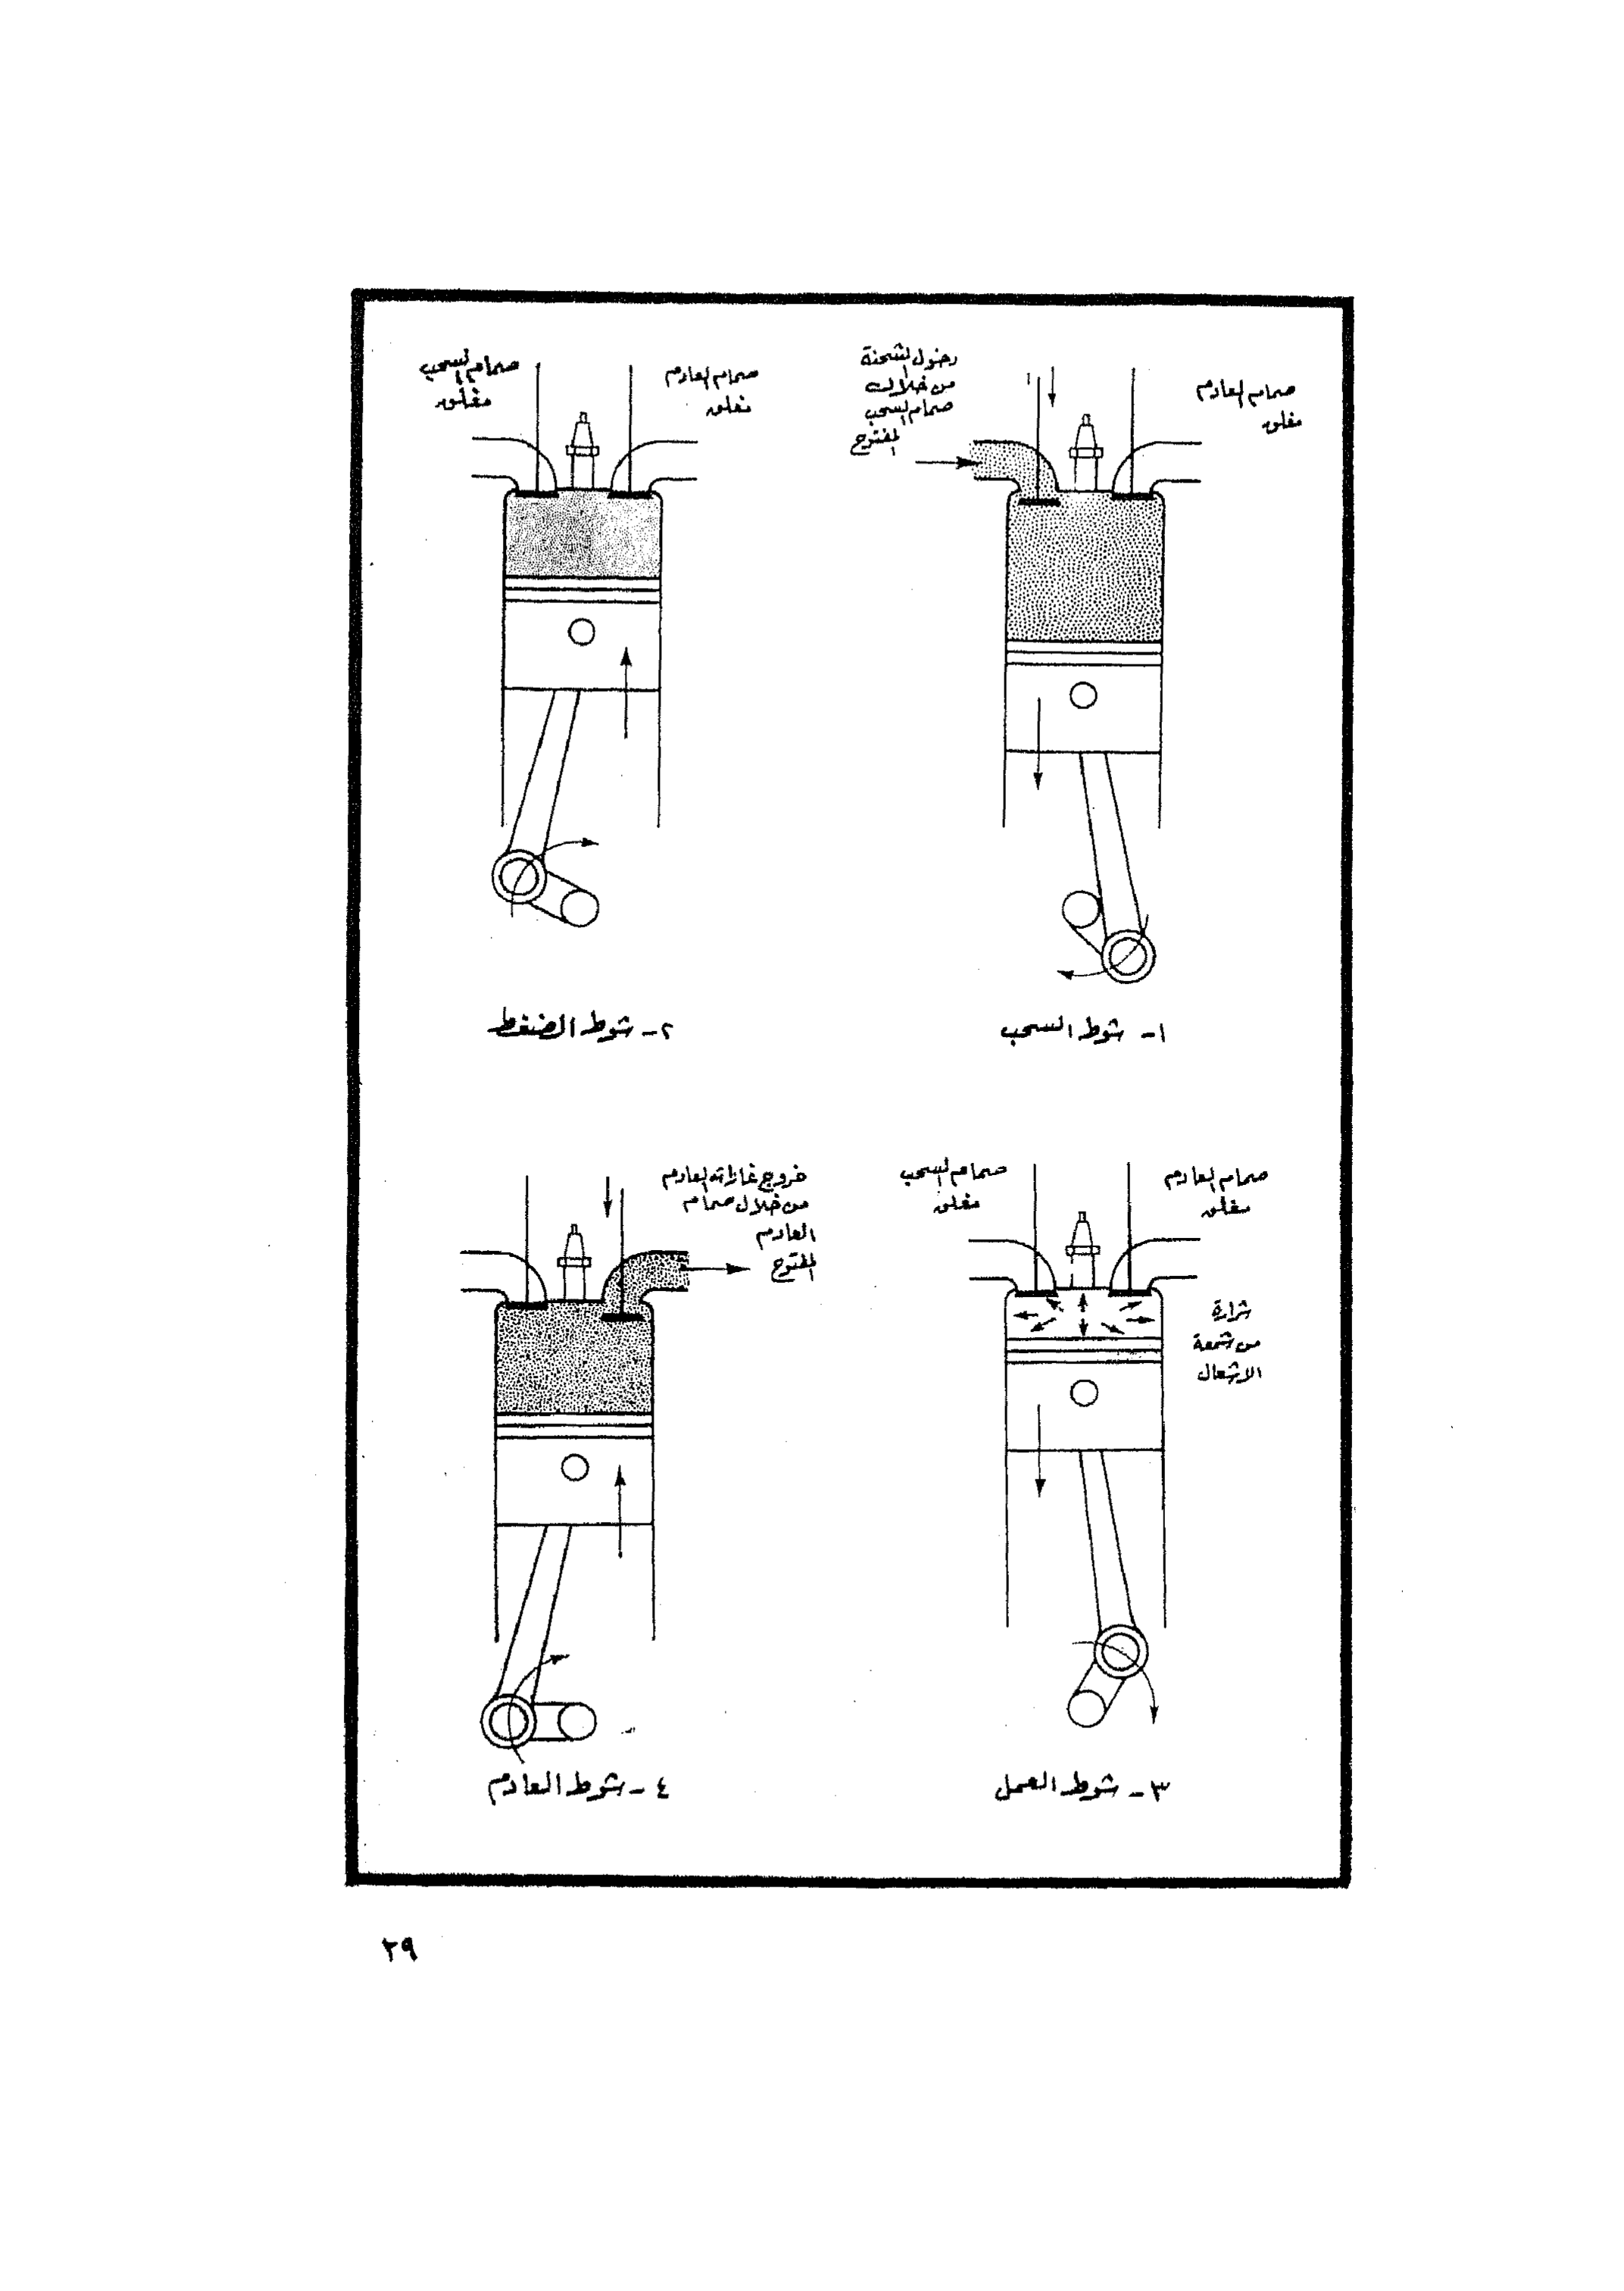 دخول الشحنة
من خلال
صمام السحب
المفتوح
صمام العادم
مغلق
١- شوط السحب
صمام السحب
مغلق
صمام العادم
مغلق
٢- شوط الضغط
صمام السحب
مغلق
صمام العادم
مغلق
شرارة
من شمعة
الاشعال
٣- شوط العمل
خروج غازات العادم
من خلال صمام
العادم
المفتوح
٤- شوط العادم
٢٩